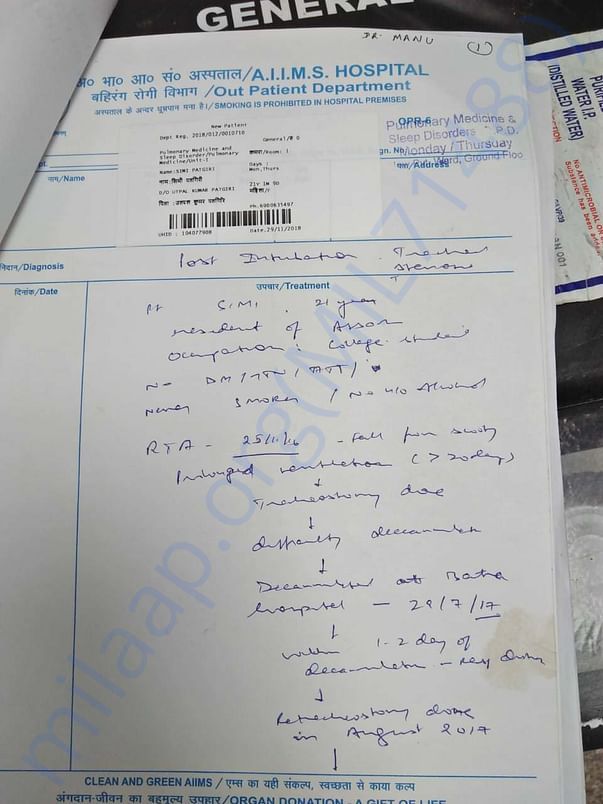 GENERAL
DR. MANU
1
भ० भा० आ० सं० अस्पताल/A.I.I.M.S. HOSPITAL
बहिरंग रोगी विभाग /Out Patient Department
अस्पताल के अन्दर धूम्रपान मना है।/SMOKING IS PROHIBITED IN HOSPITAL PREMISES
OPR-6
Pulmonary Medicine &
Sleep Disorders P.D.
Monday / Thursday
Ward, Ground Floo
New Patient
Dept Reg. 2018/012/0010710
General/₹ 0
Pulmonary Medicine and
Sleep Disorder/Pulmonary
Medicine/Unit-I
Room: 1
Days :
Mon,Thurs
Name:SIMI PATGIRI
21Y 1M 9D
D/O UTPAL KUMAR PATGIRI
Ph.6900635497
UHID : 104077908
Date.29/11/2018
नाम/Name
पता/Address
निदान/Diagnosis
Post Intubation Tracheal
stenosis
दिनांक/Date
उपचार/Treatment
Pt SIMI, 21 year
resident of Assam
Occupation: College student
N- DM/HTN/ATT/
Never smoker / No h/o Alcohol
RTA - 25/11/16 - fall from scooty
Prolonged ventilation (>20days)
↓
Tracheostomy done
↓
difficulty decannulation
↓
Decannulated at Batra
hospital - 29/7/17
↓
within 1-2 day of
decannulation - resp
↓
Retracheostomy done
in August 2017
↓
CLEAN AND GREEN AIIMS / एम्स का यही संकल्प, स्वच्छता से काया कल्प
अंगदान-जीवन का बहुमूल्य उपहार/ORGAN DONATION - A GIFT OF LIFE
WATER I.P.
(DISTILLED WATER)
No ANTIMICROBIAL OR
Substance has been
milaap.org